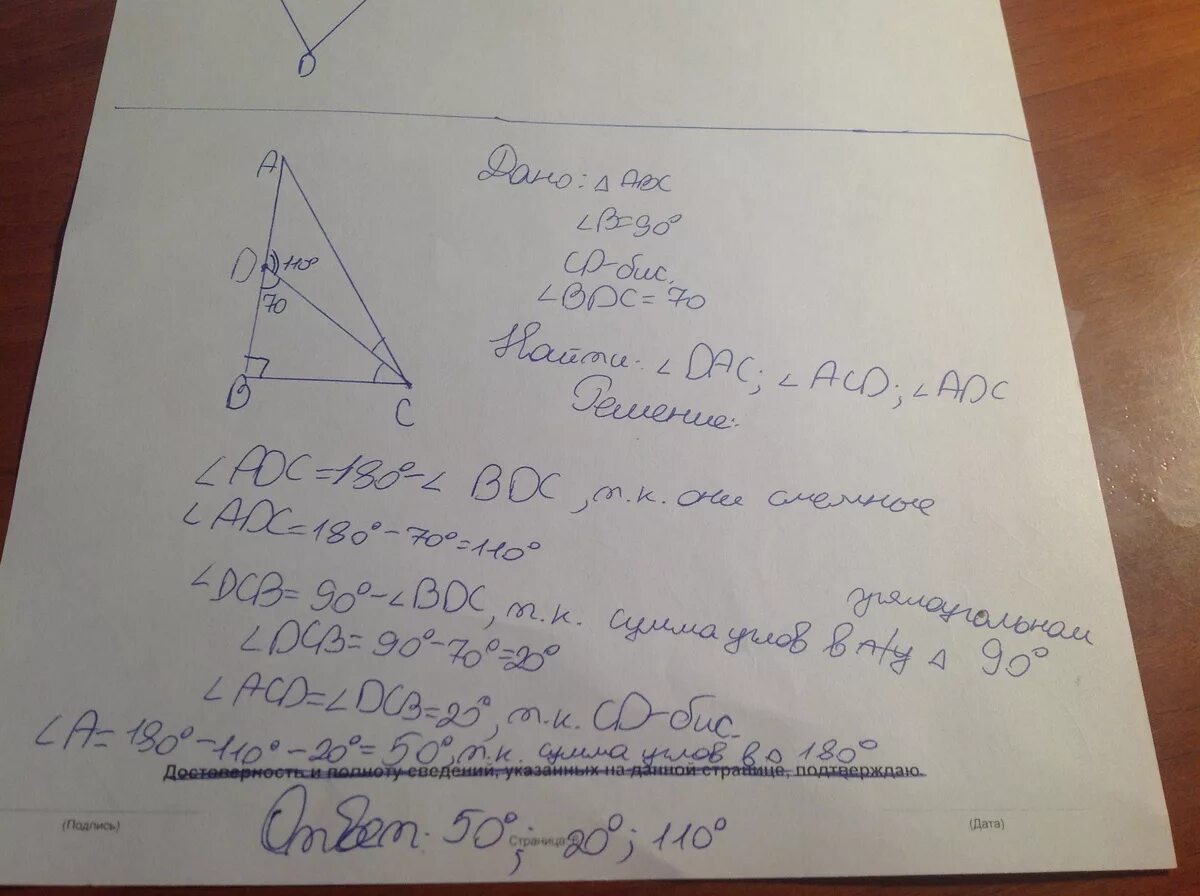 D
A
D
110°
70
B
C
Дано: △ ABC
∠B=90°
CD-бис.
∠BDC=70
Найти: ∠DAC; ∠ACD; ∠ADC
Решение:
∠ADC=180°-∠ BDC, т.к. они смежные
∠ADC=180°-70°=110°
∠DCB=90°-∠BDC, т.к. сумма углов в п/у △ 90°
прямоугольном
∠DCB=90°-70°=20°
∠ACD=∠DCB=20°, т.к. CD-бис.
∠A=180°-110°-20°=50°, т.к. сумма углов в △ 180°
Достоверность и полноту сведений, указанных на данной странице, подтверждаю.
(Подпись)
Страница
(Дата)
Ответ: 50°; 20°; 110°